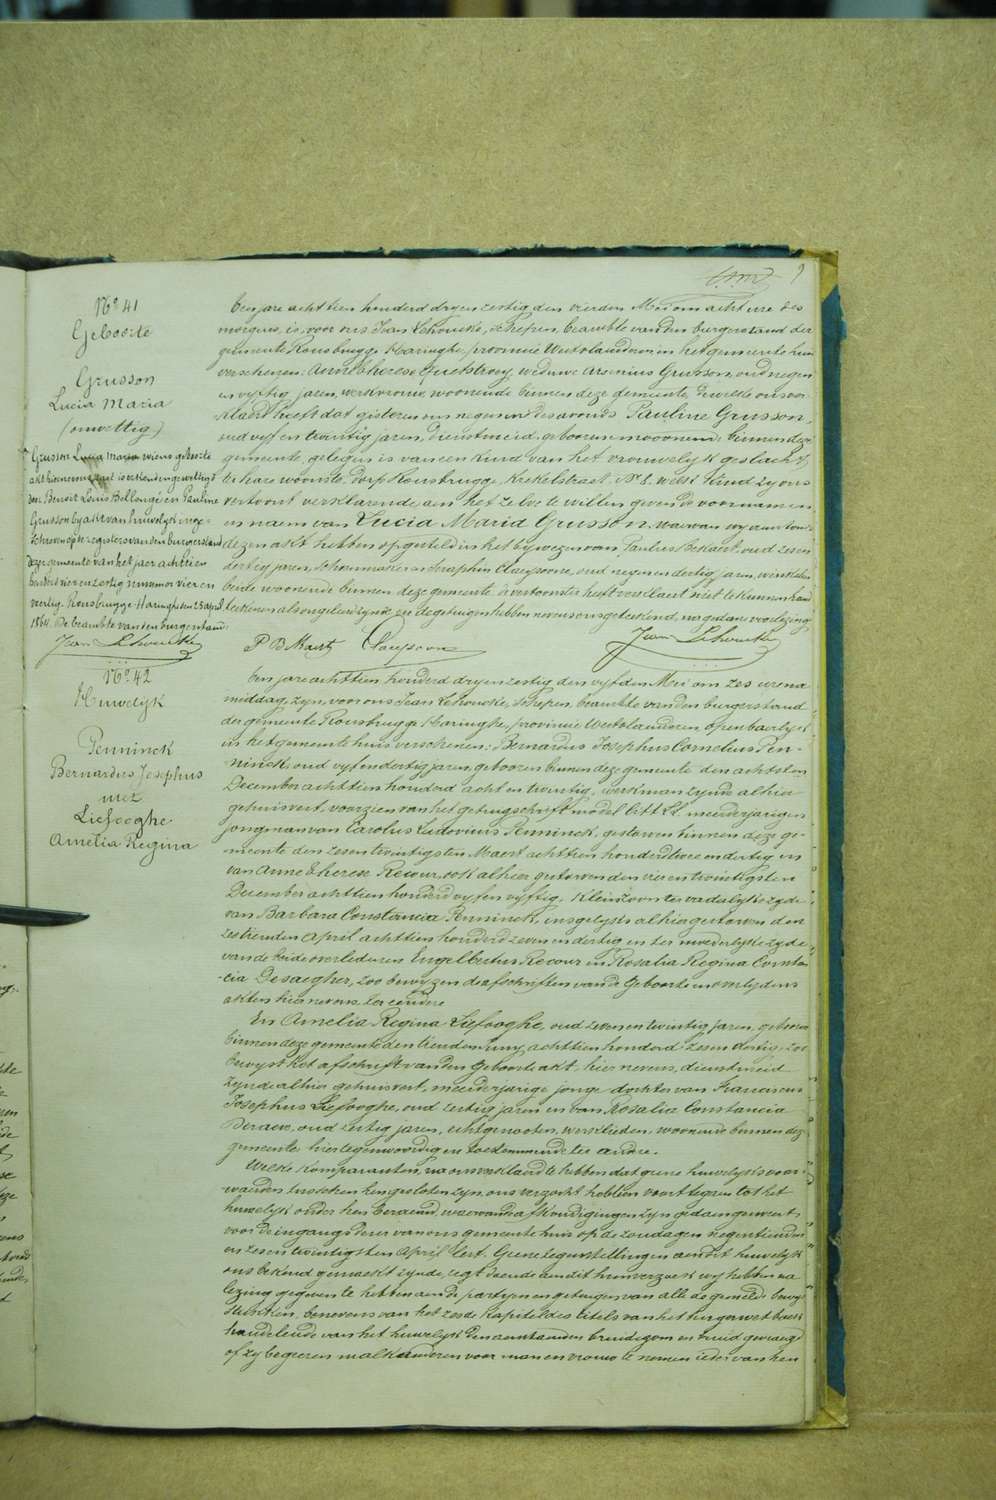 9
No. 41
Geboorte
Grusson
Lucia Maria
(onwettig)
Grusson Lucia maria wiens geboorte
akt hiernevens staet is erkend en gewettigd
door Benoit Louis Bellengé en Pauline
Grusson by akt van huwelyk inge-
schreven op de registers van den burgerstand
dezer gemeente van het jaer achttien
honderd vier en zestig nummer vier en
veertig. Rousbrugge-Haringhe den 25 april
1864. De beambte van den burgerstand:
Jean Lehoucke
Een jare achttien honderd dryen zestig den vierden Mei om acht ure des
morgens, is, voor ons Jean Lehoucke, schepen, beambte van den burgerstand der
gemeente Rousbrugge-Haringhe, provincie Westvlaenderen in het gemeente huis
verschenen: Anne Therese Quetstroey, weduwe Arsenius Grusson, oud negen
en vyftig jaren, werkvrouw, woonende binnen deze gemeente, dewelke ons ver-
klaerd heeft dat gisteren om negen ure des avonds Pauline Grusson,
oud vyf en twintig jaren, dienstmeid, geboren en woonende binnen deze
gemeente, gelegen is van een kind van het vrouwelyk geslacht,
te hare woonste, dorp Rousbrugge, Krekelstraet, No. 2. welk kind zy ons
vertoont verklarende aen het zelve te willen geven de voornamen
en naem van Lucia Maria Grusson. Waervan wy
dezen akt hebben opgesteld in het bywezen van Paulus Bekaert, oud zes en
dertig jaren, schoenmaker en Seraphin Claeysoone, oud negen en dertig jaren, winkelier
beide woonende binnen deze gemeente. De vertoonster heeft verklaert niet te kunnen hand
teekenen als ongeleerd zynde en de getuigen hebben nevens ons geteekend, na gedane voorlezing.
P Bekaert Claeysoone Jean Lehoucke
No. 42
Huwelyk
Penninck
Bernardus Josephus
met
Liefooghe
Amelia Regina
Een jare achttien honderd dryen zestig den vyfden Mei om zes uren na
middag, zyn, voor ons Jean Lehoucke, schepen, beambte van den burgerstand
der gemeente Rousbrugge-Haringhe, provincie Westvlaenderen openbaerlyk
in het gemeente huis verschenen: Bernardus Josephus Cornelius Pen-
ninck, oud vyf en dertig jaren, geboren binnen deze gemeente den achtsten
December achttien honderd acht en twintig, werkman zynde alhier
gehuisvest, voorzien van het getuigschrift model litt. meerderjarigen
jongman van Carolus Ludovicus Penninck, gestorven binnen deze ge-
meente den zesentwintigsten Maert achttien honderd twee en dertig en
van Anne Therese Recour, ook alhier gestorven den vier en twintigsten
December achttien honderd vyf en vyftig, kleinzoon ter vaderlyke zyde
van Barbara Constancia Penninck, insgelyks alhier gestorven den
zestienden April achttien honderd zeven en dertig en ter moederlyke zyde
van de beide overledenen Engelbertus Recour en Rosalia Regina Constan-
cia Desaegher, zoo bewyzen de afschriften van de Geboorte en overlydens
akten hier nevens, ter eendere
En Amelia Regina Liefooghe, oud zeven en twintig jaren, geboren
binnen deze gemeente den tienden Juny achttien honderd zes en dertig, zoo
bewyst het afschrift van den Geboorte akt, hier nevens, dienstmeid
zynde alhier gehuisvest, meerderjarige jonge dochter van Franciscus
Josephus Liefooghe, oud zestig jaren en van Rosalia Constancia
Deraeve, oud zestig jaren, echtgenooten, werklieden, woonende binnen deze
gemeente, hier tegenwoordig en toestemmende ter andere.
Welke komparanten, na ons verklaerd te hebben dat geene huwelyksvoor-
waerden tusschen hen gesloten zyn, ons verzocht hebben voort te gaen tot het
huwelyk onder hen beraemd, waervan de afkondigingen zyn gedaen geweest
voor de ingangs deur van ons gemeente huis op de zondagen negentienden
en zes en twintigsten April lest. Geene tegenstellingen aen dit huwelyk
ons bekend gemaekt zynde, regt doende aen dit hun verzoek wy hebben na
lezing gegeven te hebben aen de partyen en getuigen van alle de gemelde bewys
stukken, benevens van het zesde kapittel des titels van het burger wetboek
handelende van het huwelyk den aenstaenden bruidegom en bruid gevraegd
of zy begeeren malkanderen voor man en vrouw te nemen ieder van hen